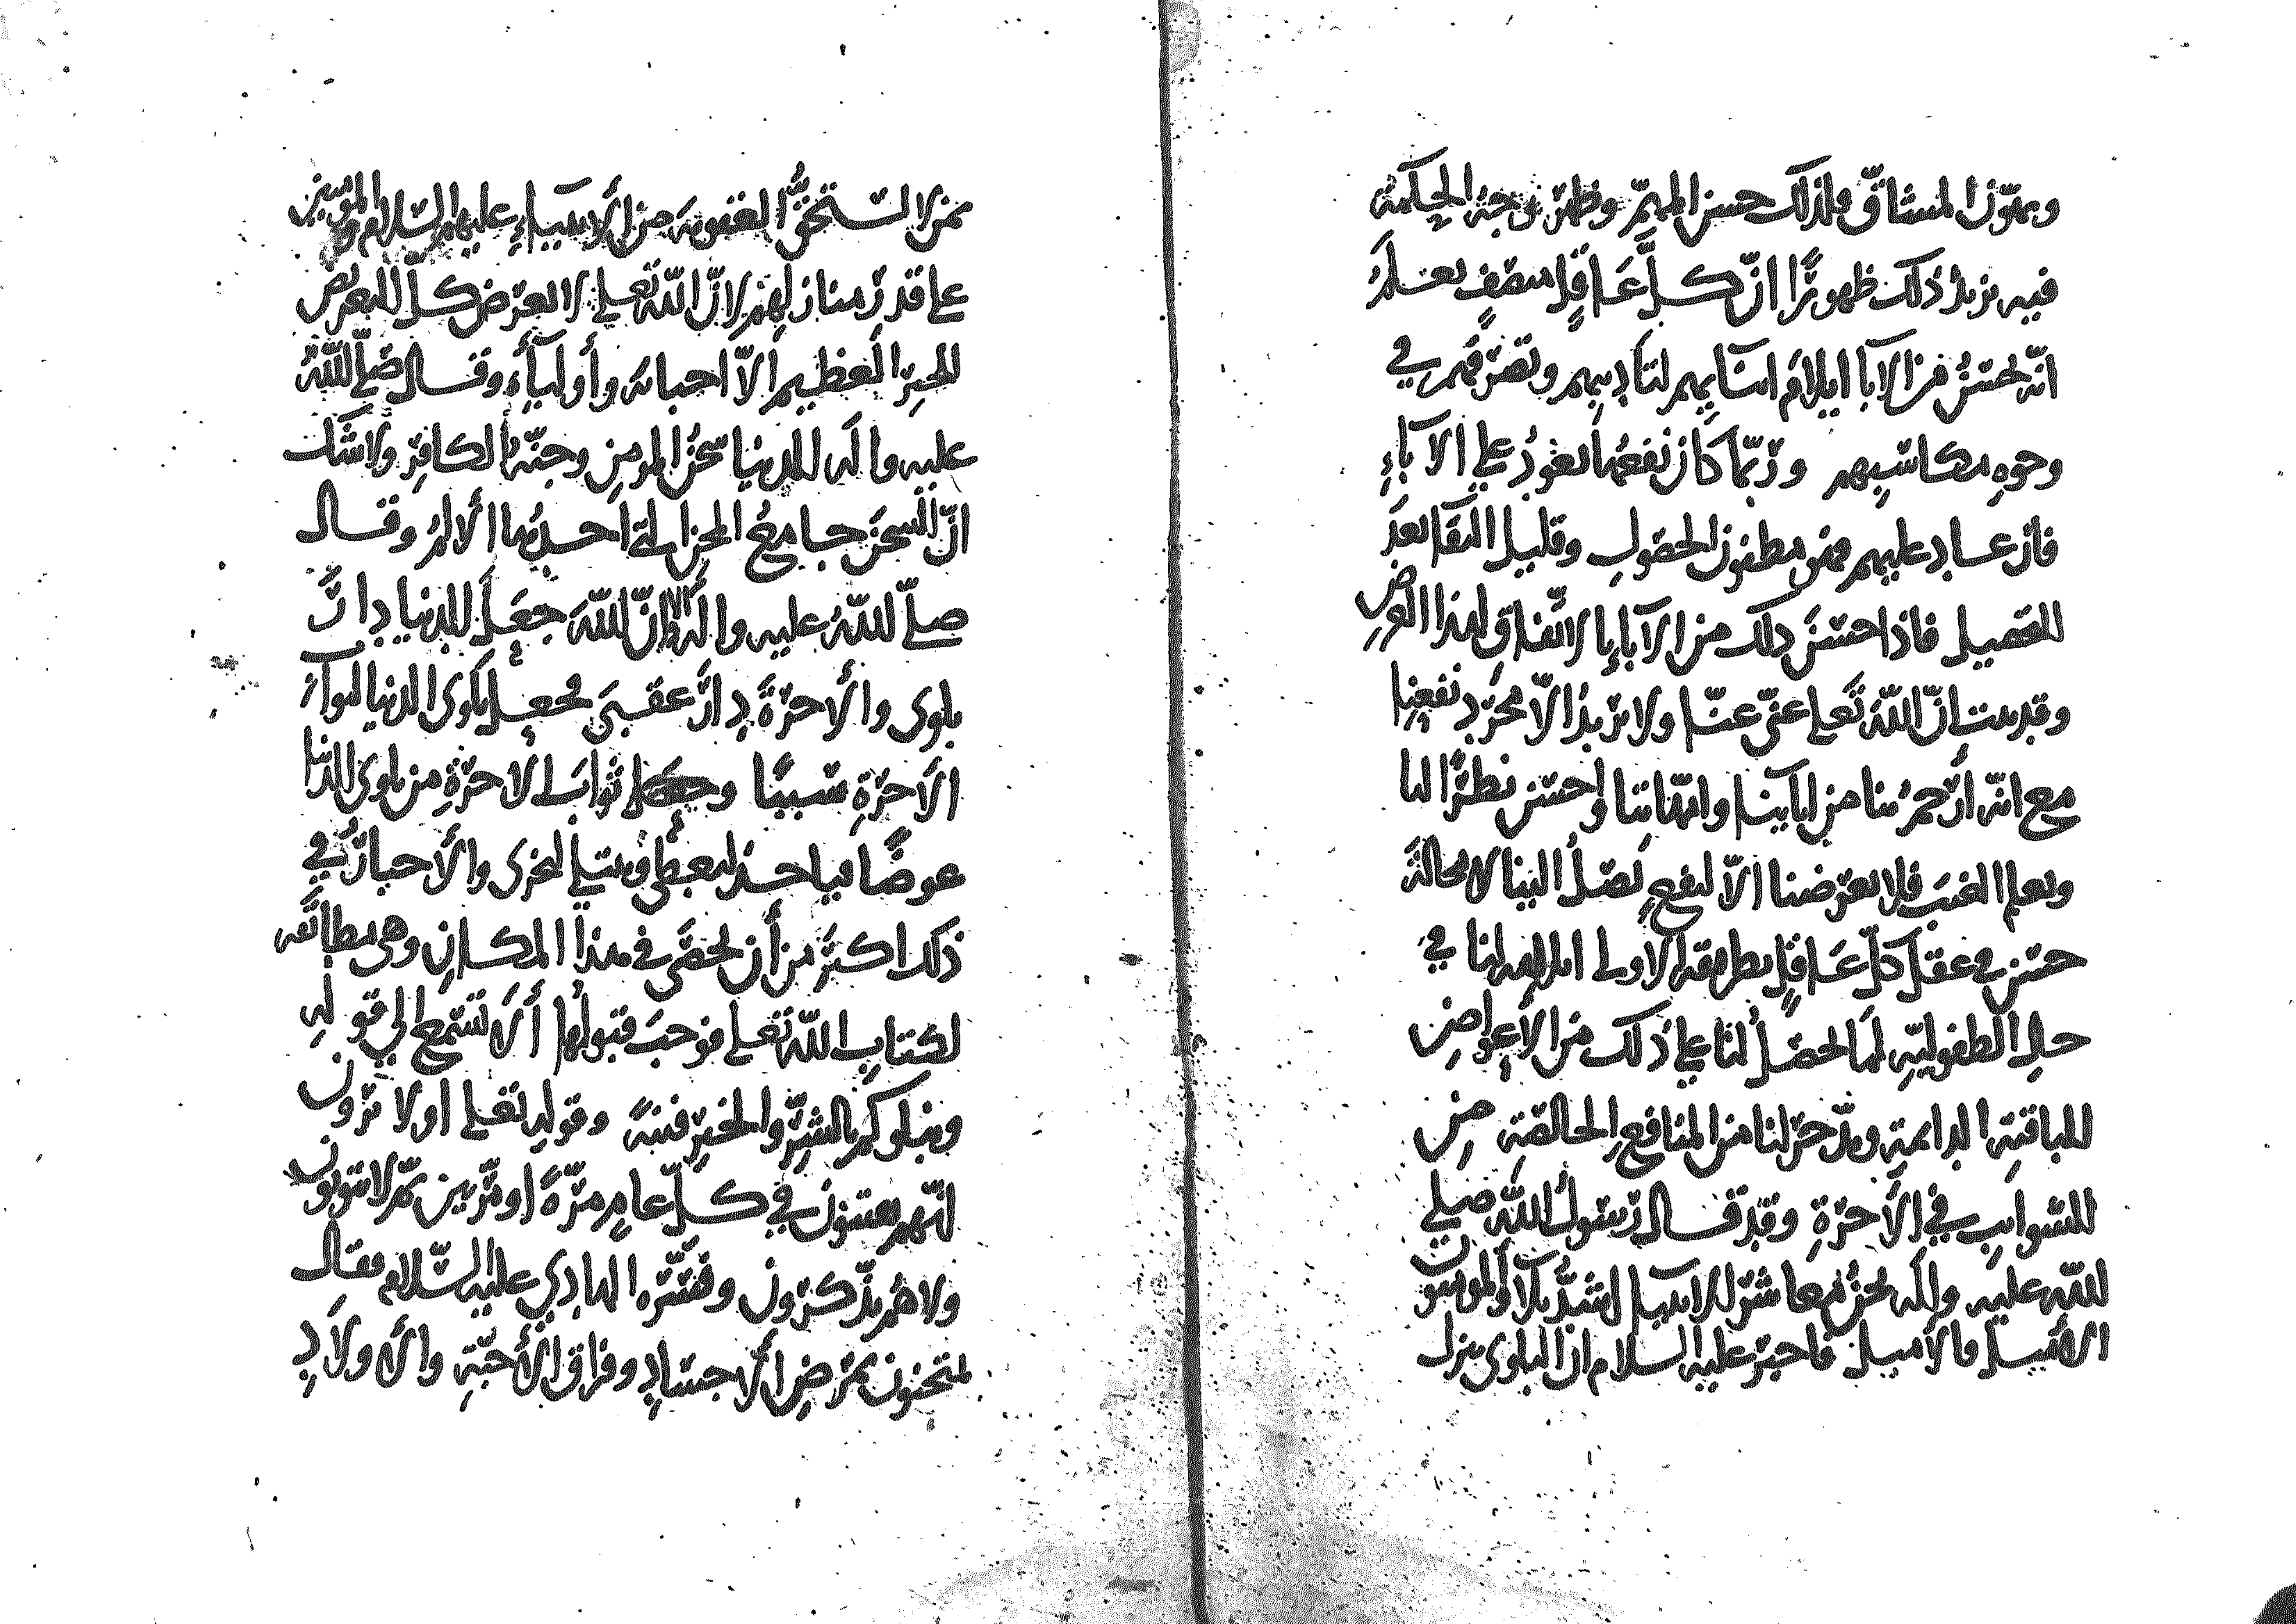 ويهون المشاق ولذلك حسن المهر وظهر وجه الحكمة
فيه يزيد ذلك ظهورًا انّ كلّ عاقلٍ منصفٍ يعلم
انّه يحسنُ من الآبا ايلام ابنآيهم لتاديبهم وتصرّفهم في
وجوهِ مكاسبهم وربّما كان نفعها يعودُ على الآباءِ
فان عاد عليهم فهو مظنون الحصول وقليل البقا بعد
التحصيل فاذا حسنَ ذلك من الآباءِ بالاتفاق لهذا الغرض
وقد بينت انّ اللّه تعلى غنيّ عنّا ولا يريدُ الّا مجرّد نفعِنا
مع انّه ارحمُ بنا من ابآينا وامّهاتنا واحسن نظرًا لنا
ويعلم الغيبَ فلا يعرّضنا الّا لنفعٍ يصلُ الينا لا محالة
حسن في عقل كلّ عاقلٍ بطريقة الاولى ايلامه لنا في
حال الطفوليّةِ لما يحصلُ لنا على ذلك من الأعواضِ
الباقيةِ الدايمةِ ويدّخر لنا من المنافع الخالصةِ من
الثوابِ في الآخرةِ وقد قال رسولُ اللّه صلى
اللّه عليه وآله نحنُ معاشر الانبيا اشدُّ بلاءً والمومنون
الأمثل فالأمثل فاخبر عليه السلام ان البلوى ينزل
بمن لا يستحقُّ العقوبة من الأنبياءِ عليهم السّلام والمومنين
على قدر منازلهم لانّ اللّه تعلى لا يعرّض كلّ التعريض
للخيرِ العظيمِ الّا احبّاءَه وأوليآءَه وقال صلّى اللّهُ
عليه وآله الدنيا سجنُ المومنِ وجنّة الكافر ولا شكّ
انّ السجنَ جامعُ المحن التي احدها الالمُ وقال
صلّى اللّهُ عليه وآله الا انّ اللّه جعلَ الدنيا دارَ
بلوى والآخرةَ دارَ عقبى فجعل بلوى الدنيا لثواب
الآخرةِ سببًا وجعل ثوابَ الآخرةِ من بلوى الدنيا
عوضًا فياخذ ليعطي ويبتلي ليجزي والأخبارُ في
ذلك اكثر من أن تحصَى في هذا المكان وهي مطابقة
لكتابِ اللّه تعلى فوجبَ قبولها ألا تستمع الى قوله
ونبلوكم بالشرِّ والخيرِ فتنةً وقوله تعلى اولا يرون
انّهم يفتنون في كلّ عامٍ مرّةً او مرّتين ثمّ لا يتوبون
ولا هُم يذّكرون وفسّره الهادي عليه السّلام فقال
يمتحنون بمرَض الأجسادِ وفراق الأحبّةِ والأولادِ